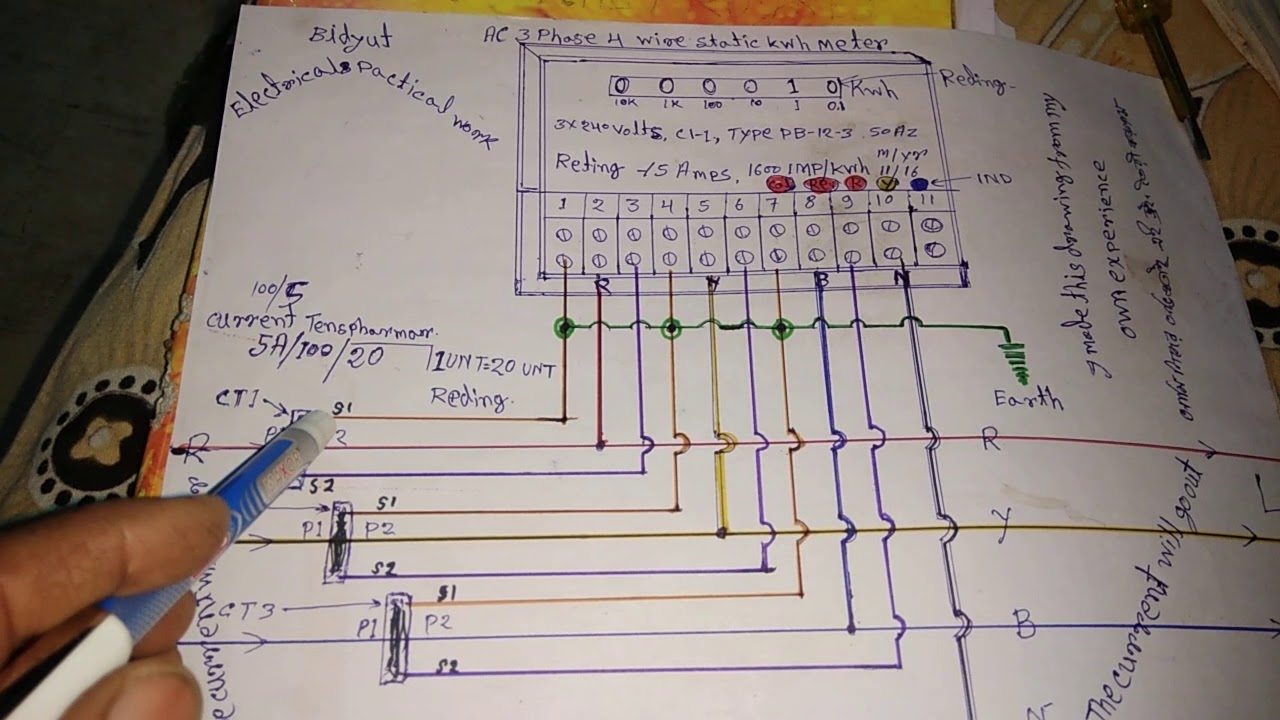 Bidyut
Electricals Pactical work
AC 3 Phase 4 wire static kwh meter
0 0 0 0 1 0 Kwh
10K 1K 100 10 1 0.1
Reding
3x240volts, Cl-1, TYPE PB-12-3 50Hz
Reting -15 Amps, 1600 IMP/kwh
M/yr
11/16
Rev R Y
IND
1 2 3 4 5 6 7 8 9 10 11
R Y B N
100/5
Current Tenspharmar.
5A/100/20 1UNT=20 UNT
Reding.
Earth
CT1
S1
P 2
R R
S2
S1
P1 P2
Y
S2
CT3
S1
P1 P2
B
S2
I made this drawing from my
own experience
The current flow will go out